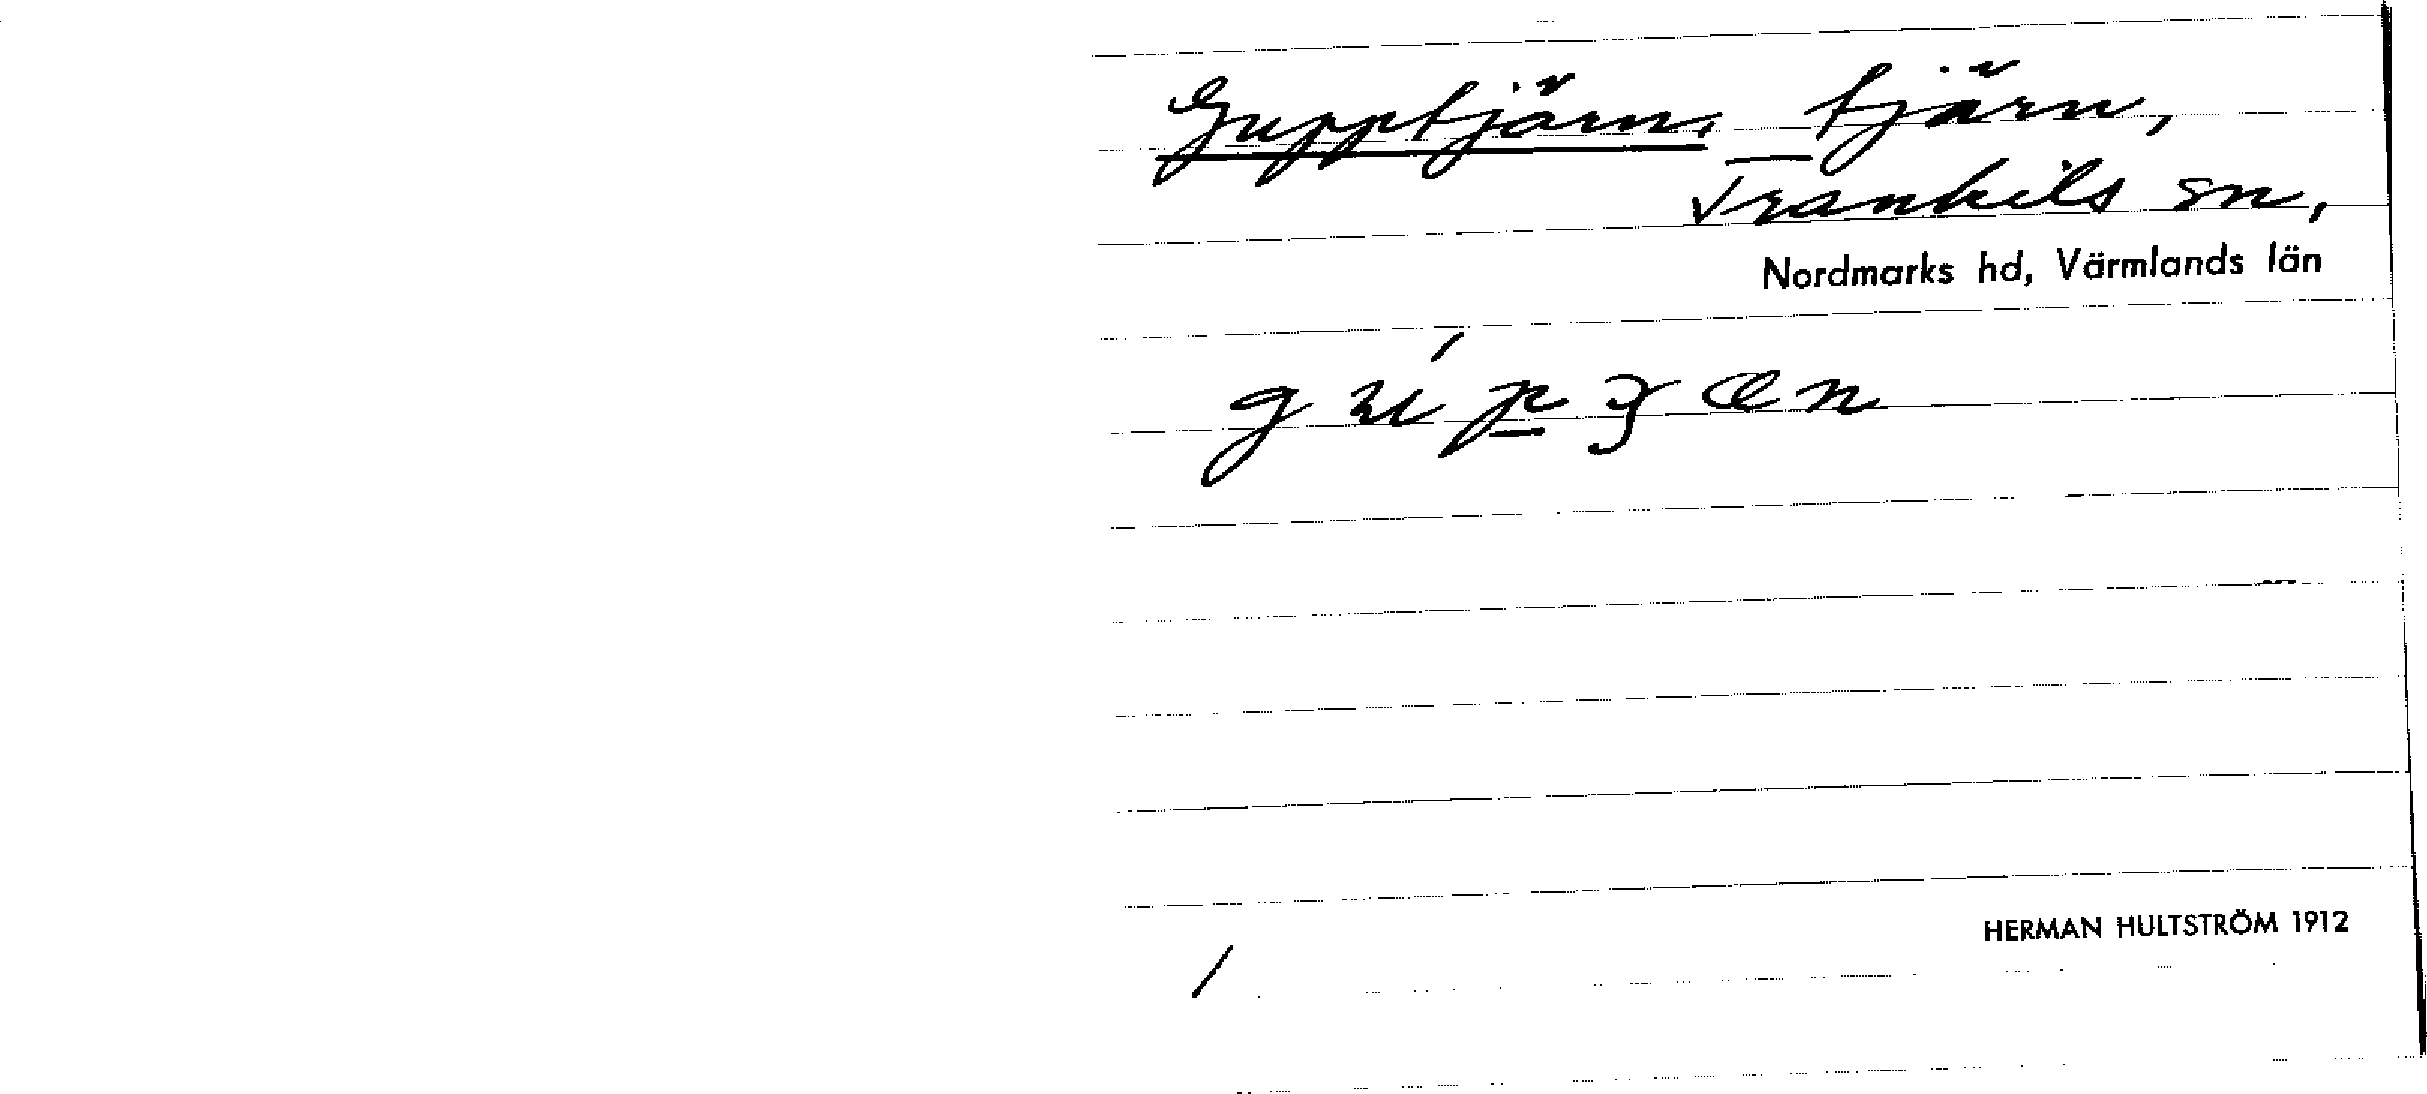 Gupptjärn, tjärn,
Trankils sn,
Nordmarks hd, Värmlands län
HERMAN HULTSTRÖM 1912
/